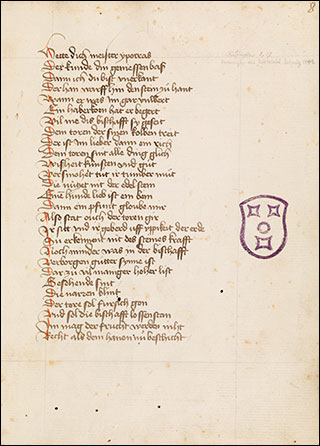 8
Hette dich meister ypocras
Der kunde din geniessen bas
Dann ich du bist unerkant
Der han warff hin den stein zu hant
Wann er was im gar unwert
Ein haberkorn hat er begert
Vil me dis bischafft sy geseit
Dem toren der sinen kolben treit
Der ist im lieber dann ein
Dem toren sint alle ding glich
Wisheit kunsten und gut
Versmohet tut ir tumber mut
Die nutzet nit der edel stein
Eine hunde lieb ist ein bein
Dann ein pfunt gloube mir
Also stat ouch der toren gir
Ir sitt und ir geberd uff yppikeit der erde
Su erkennent nit des steines krafft
Noch minder was in der bischafft
Verborgen gutter synne ist
Dar zu vil maniger hoher list
Gesehende sint
Die narren blint
Der tore sol fursich gon
Und sol die bischafft lossen ston
Im mag der frucht werden niht
Recht als dem hanen beschicht